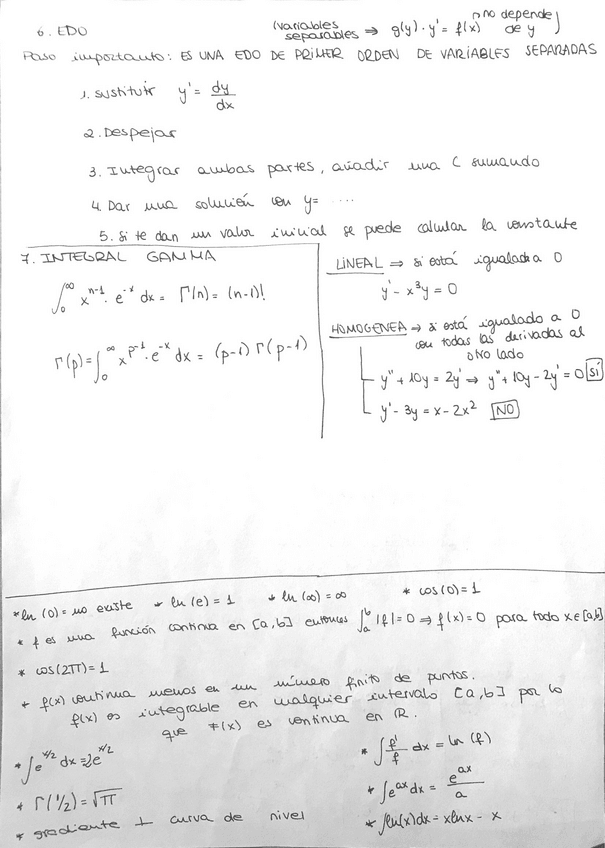 6. EDO (variables separables ⇒ g(y) · y' = f(x) → no depende de y)
Paso importante: ES UNA EDO DE PRIMER ORDEN DE VARIABLES SEPARADAS
1. Sustituir y' = dy/dx
2. Despejar
3. Integrar ambas partes, añadir una C sumando
4. Dar una solución con y= ....
5. Si te dan un valor inicial se puede calcular la constante
7. INTEGRAL GAMMA
∫₀^∞ x^(n-1) · e^(-x) dx = Γ(n) = (n-1)!
Γ(p) = ∫₀^∞ x^(p-1) · e^(-x) dx = (p-1) Γ(p-1)
LINEAL ⇒ si está igualada a 0
y' - x³y = 0
HOMOGENEA → si está igualado a 0
con todas las derivadas al
otro lado
y'' + 10y = 2y' ⇒ y'' + 10y - 2y' = 0 SÍ
y' - 3y = x - 2x² NO
* ln (0) = no existe * ln (e) = 1 * ln (∞) = ∞ * cos(0) = 1
* f es una función continua en [a,b] entonces ∫ₐᵇ |f| = 0 ⇒ f(x) = 0 para todo x∈[a,b]
* cos(2π) = 1
* f(x) continua menos en un número finito de puntos.
f(x) es integrable en cualquier intervalo [a,b] por lo
que F(x) es continua en ℝ.
* ∫e^(x/2) dx = 2e^(x/2)
* Γ(1/2) = √π
* gradiente ⊥ curva de nivel
* ∫ f'/f dx = ln (f)
* ∫e^(ax) dx = e^(ax)/a
* ∫ln(x)dx = xlnx - x